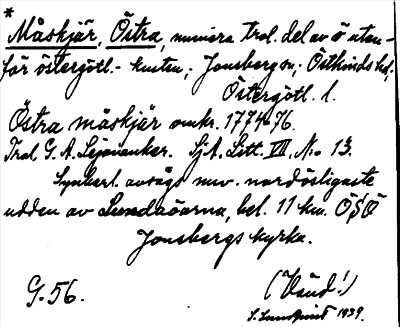 *
Måskjär, Östra, numera trol. del av ö utan-
för östergötl.- kusten; Jonsbergs sn; Östkinds hd;
Östergötl. l.
Östra måskjär omkr. 1774-76.
Trol G. A. Lejonanker. SjA. Litt. VII, No 13.
Synkart. avsågs nuv. nordöstligaste
udden av Lundaöarna, bel. 11 km. ÖSÖ
Jonsbergs kyrka.
G. 56.
(Vänd!)
S. Lundquist 1939.